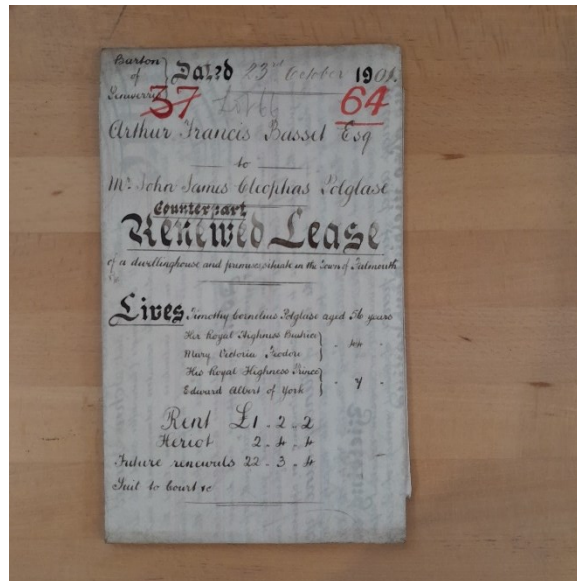 Barton
of
Dated 23rd October 1901.
37 64
Arthur Francis Basset Esq
to
Mr. John James Cleophas Polglase
Counterpart
Renewed Lease
of a dwellinghouse and premises situate in the Town of Falmouth
Lives Timothy Cornelius Polglase aged 56 years
Her Royal Highness
Mary Victoria Feodore
His Royal Highness Prince
Edward Albert of York
Rent £1 . 2 . 2
Heriot 2 . 4 . 4
Future renewals 22 . 3 . 4
Suit to Court &c